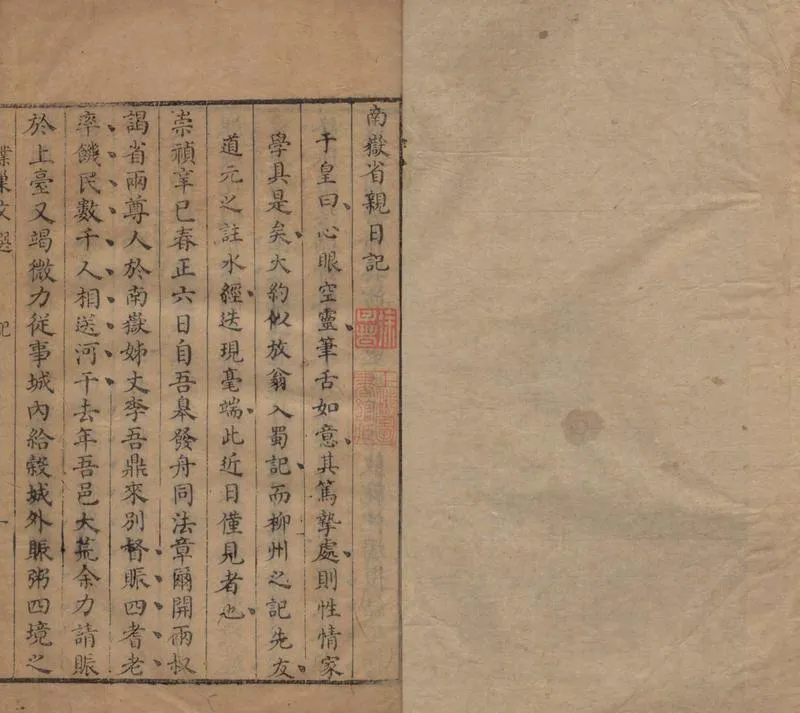 南嶽省親日記
于皇曰心眼空靈筆舌如意其篤摯處則性情家
學具是矣大約似放翁入蜀記而柳州之記先友
道元之註水經迭現毫端此近日僅見者也
崇禎辛巳春正六日自吾皋發舟同法章爾開兩叔
謁省兩尊人於南嶽姊丈李吾鼎來別督賑四耆老
率饑民數千人相送河干去年吾邑大荒余力請賑
於上臺又竭微力從事城內給穀城外賑粥四境之
巢文選
記